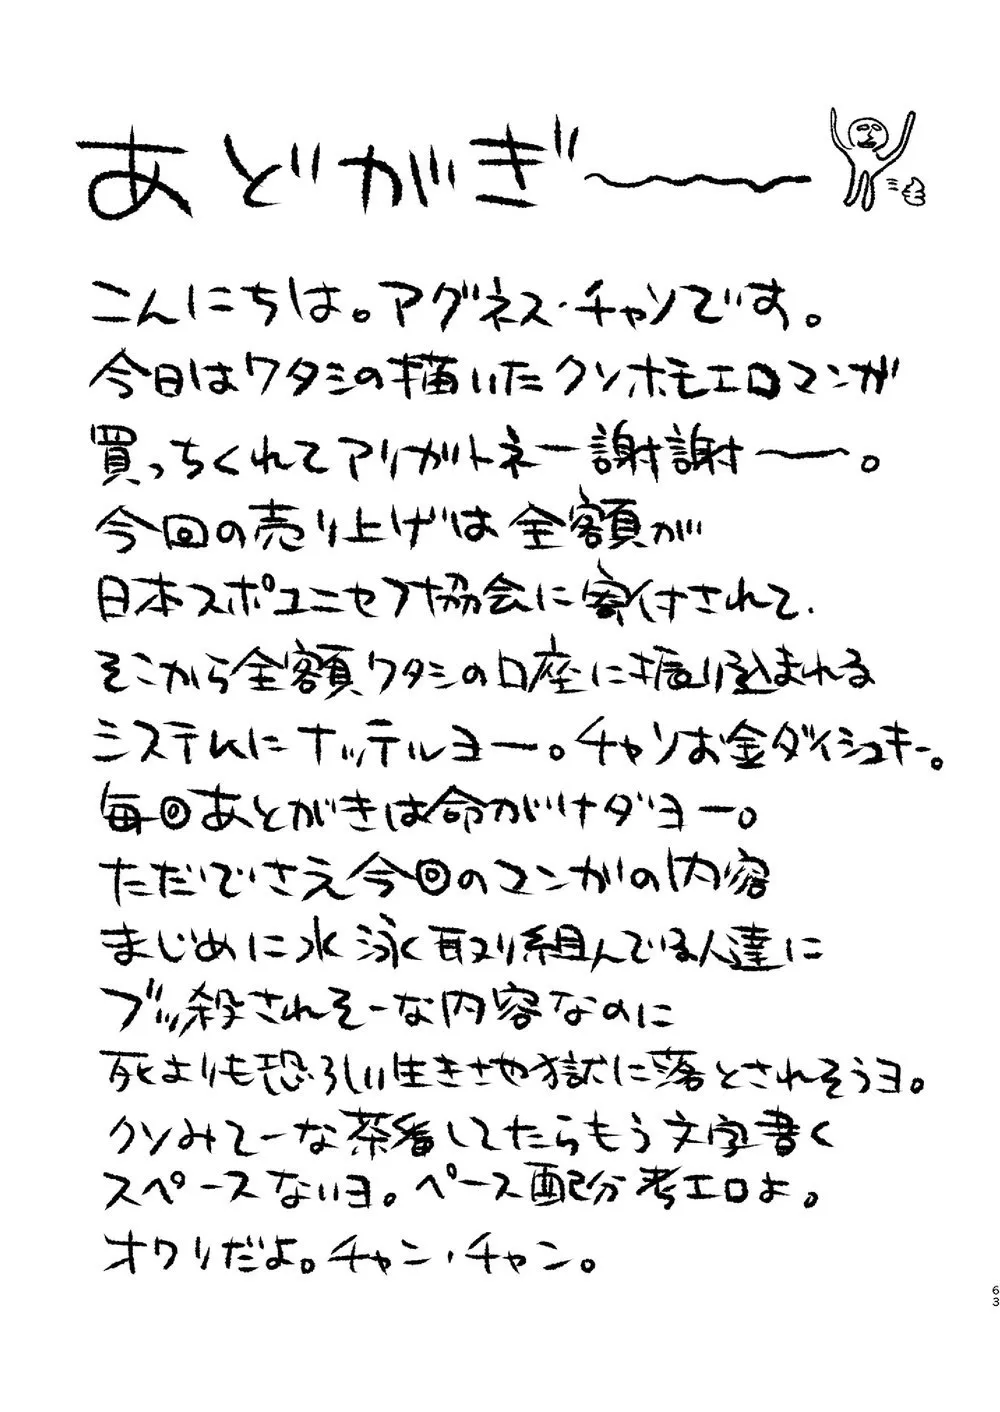 あどがぎ〜〜〜
こんにちは。アグネス・チャンです。
今日はワタシの描いたクソホモエロマンガ
買っちくれてアリガトネー謝謝〜〜。
今回の売り上げは全額が
日本スポユニセフ協会に寄付されて、
そこから全額ワタシの口座に振り込まれる
システムにナッテルヨー。チャンお金ダイシュキー。
毎回あとがきは命がけダヨー。
ただでさえ今回のマンガの内容
まじめに水泳取り組んでいる人達に
ブッ殺されそーな内容なのに
死よりも恐ろしい生き地獄に落とされそうヨ。
クソみてーな茶番してたらもう文字書く
スペースないヨ。ペース配分考エロよ。
オワリだよ。チャン・チャン。
63